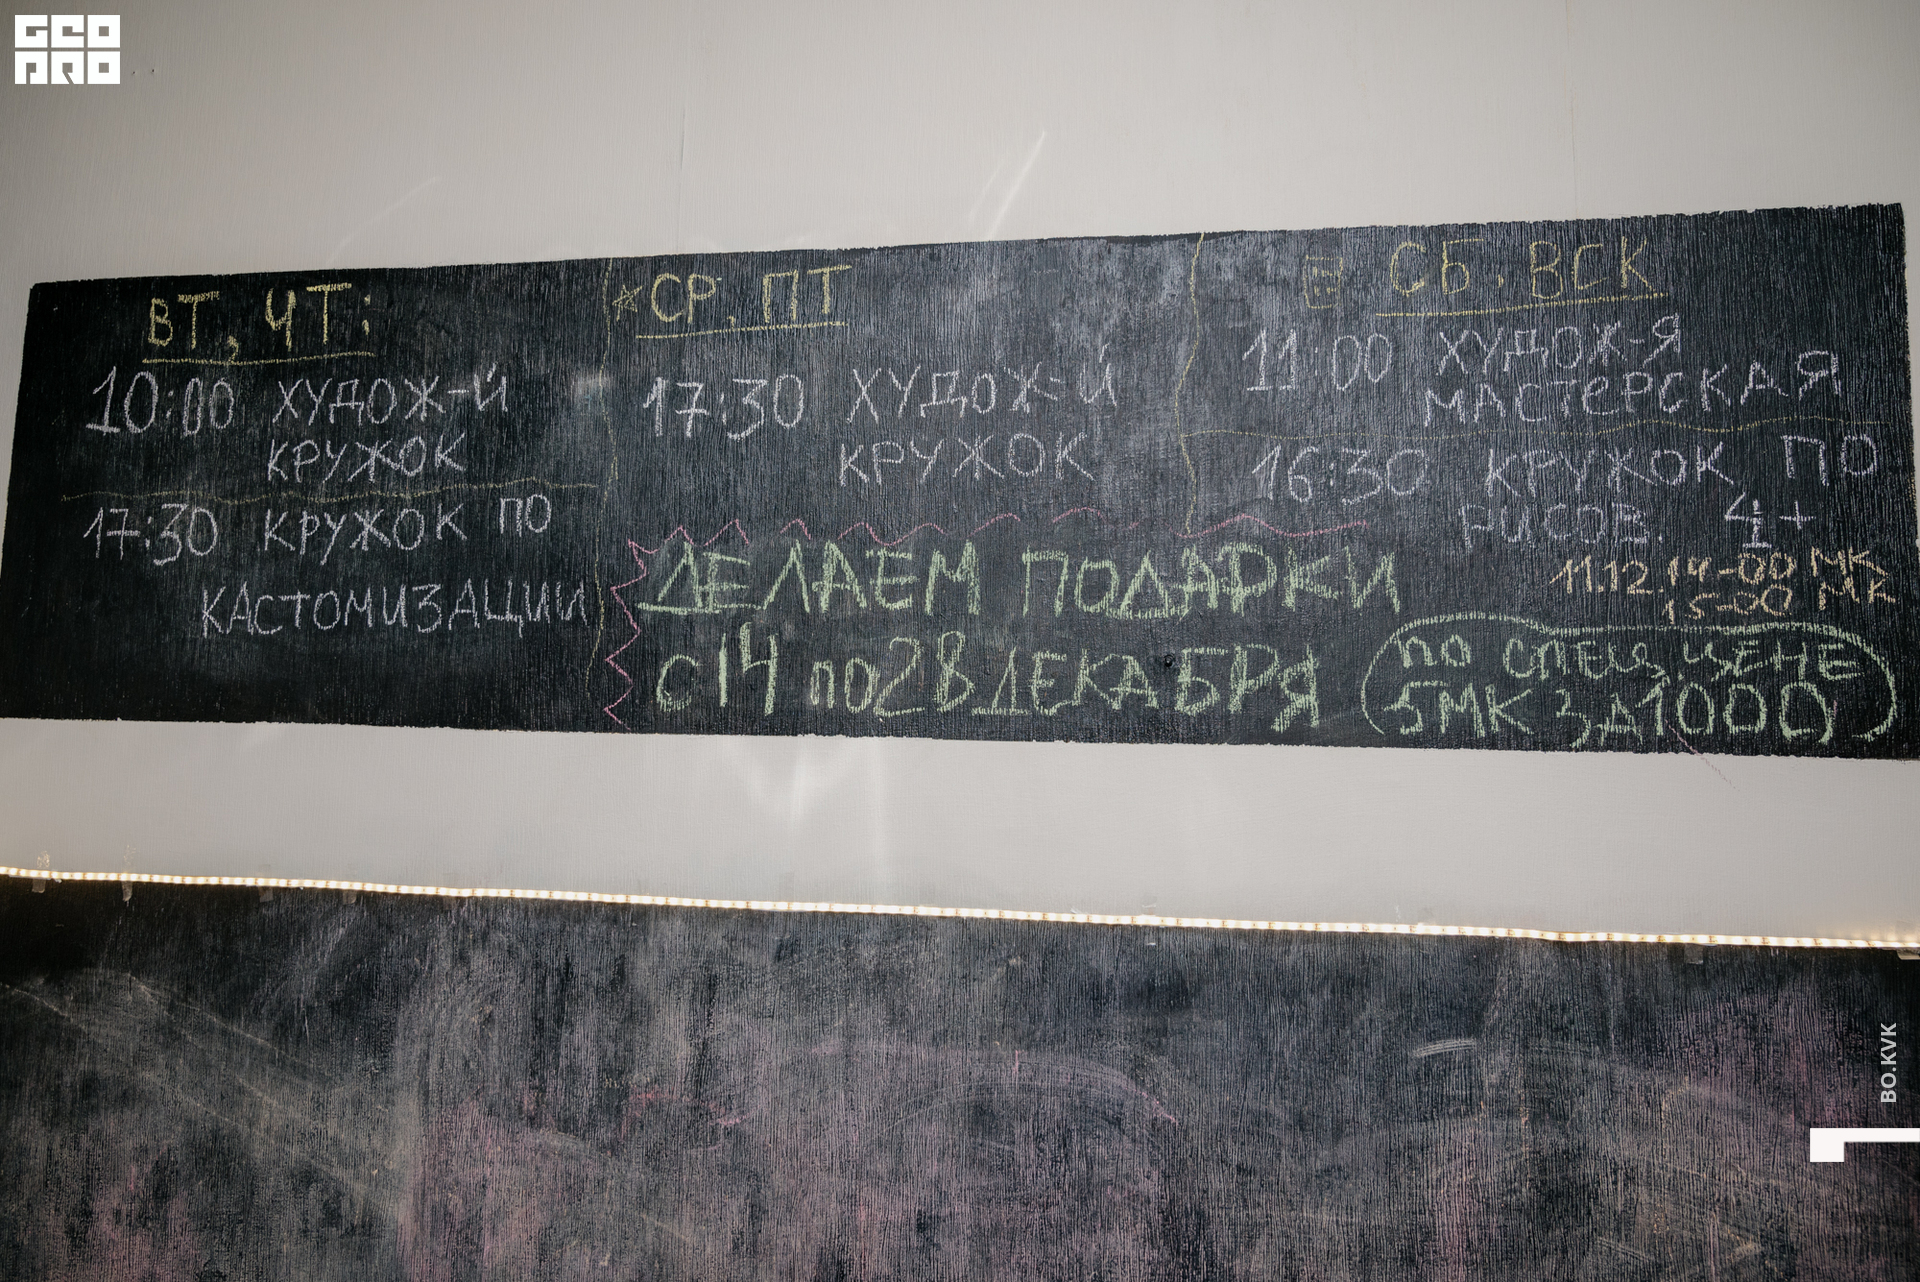 GEO
PRO
ВТ, ЧТ:
10:00 ХУДОЖ-Й
КРУЖОК
17:30 КРУЖОК ПО
КАСТОМИЗАЦИИ
СР, ПТ
17:30 ХУДОЖ-Й
КРУЖОК
СБ, ВСК
11:00 ХУДОЖ-Я
МАСТЕРСКАЯ
16:30 КРУЖОК ПО
РИСОВ. 4+
11.12. 14-00 МК
15-00 МК
ДЕЛАЕМ ПОДАРКИ
С 14 по 28 ДЕКАБРЯ
ПО СПЕЦ ЦЕНЕ
5МК ЗА 1000
BO.KVK